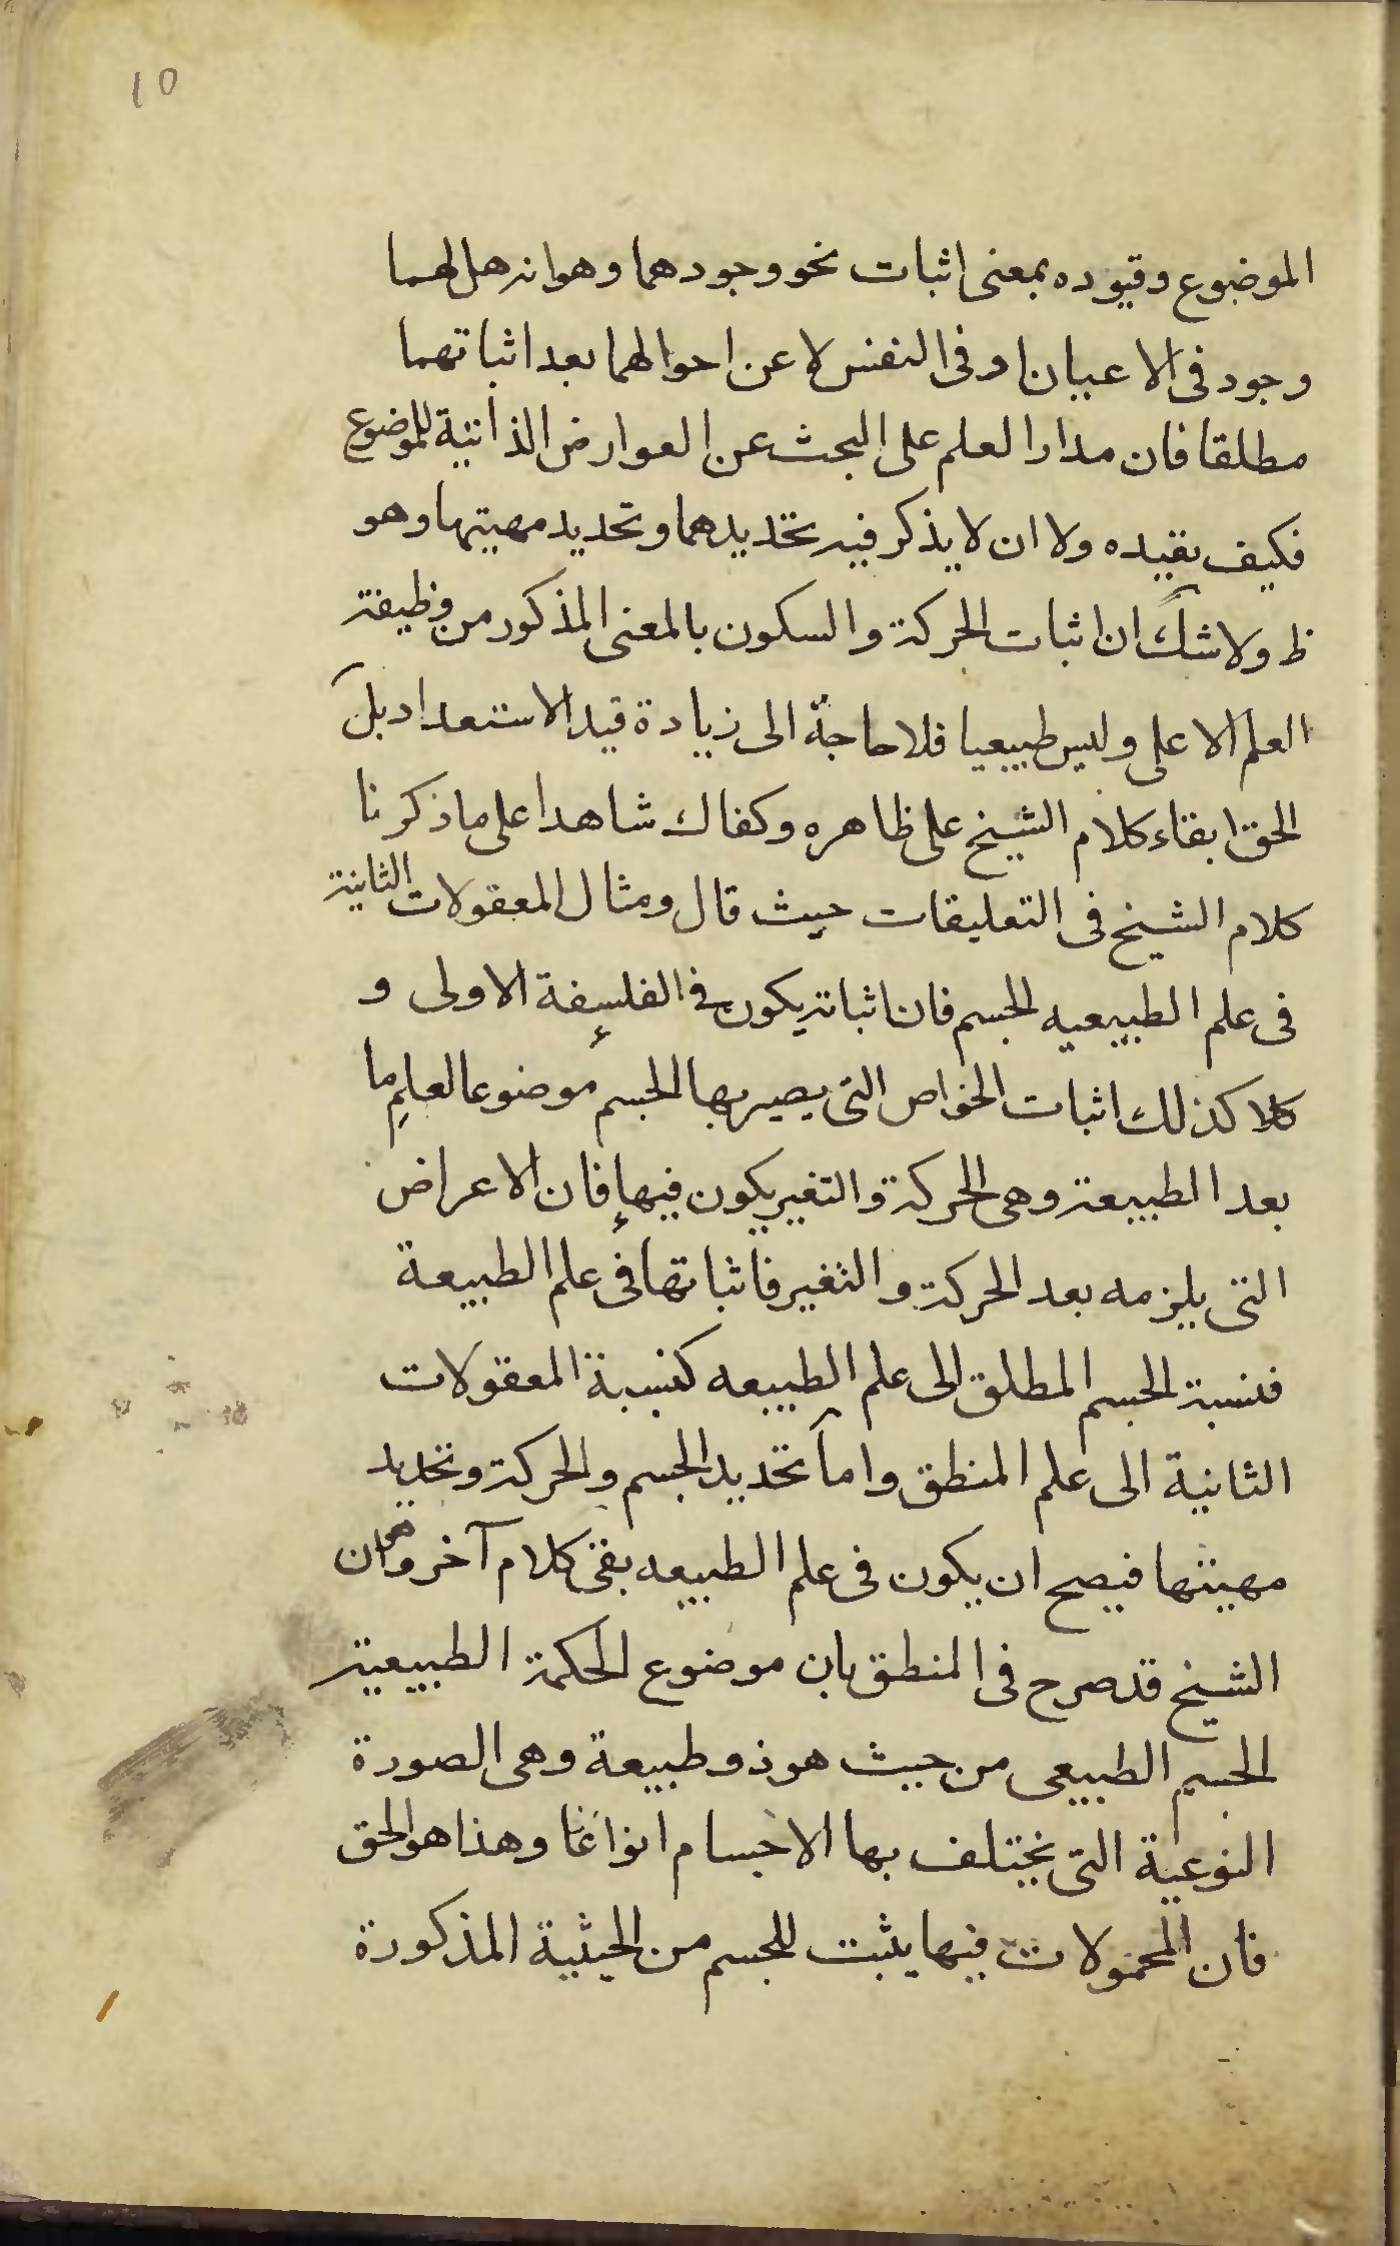 10
الموضوع وقيوده بمعنى اثبات نحو وجودهما وهو انه هل لهما
وجود فى الاعيان او فى النفس لا عن احوالهما بعد اثباتهما
مطلقا فان مدار العلم على البحث عن العوارض الذاتية للموضوع
فكيف بقيده ولا ان لا يذكر فيه تحديدهما وتحديد مهيتها وهو
ظ ولا شك ان اثبات الحركة والسكون بالمعنى المذكور من وظيفة
العلم الاعلى وليس طبيعيا فلا حاجة الى زيادة قيد الاستعداد بل
الحق ابقاء كلام الشيخ على ظاهره وكفاك شاهدا على ما ذكرنا
كلام الشيخ فى التعليقات حيث قال ومثال المعقولات الثانية
فى علم الطبيعيه الجسم فان اثباته يكون فى الفلسفة الاولى و
كلا كذلك اثبات الخواص التى يصير بها الجسم موضوعا لعلم ما
بعد الطبيعة وهى الحركة والتغير يكون فيها فان الاعراض
التى يلزمه بعد الحركة والتغير فاثباتها فى علم الطبيعة
فنسبة الجسم المطلق الى علم الطبيعه كنسبة المعقولات
الثانية الى علم المنطق واما تحديد الجسم والحركة وتحديد
مهيتها فيصح ان يكون فى علم الطبيعه بقى كلام آخر وهو ان
الشيخ قد صرح فى المنطق بان موضوع الحكمة الطبيعية
الجسم الطبيعى من حيث هو ذو طبيعة وهى الصورة
النوعية التى يختلف بها الاجسام انواعا وهذا هو الحق
فان المحمولات فيها يثبت للجسم من الحيثية المذكورة